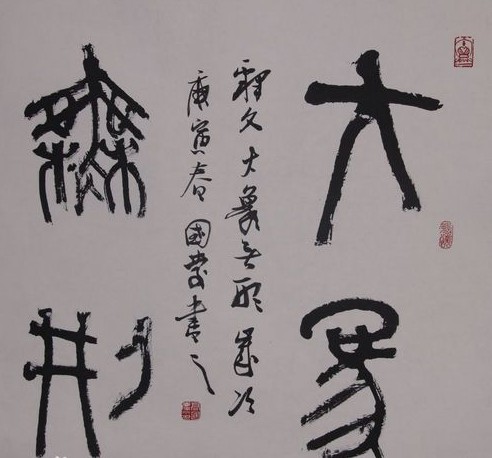 大象
無形
釋文大象無形歲次
庚寅春國書之